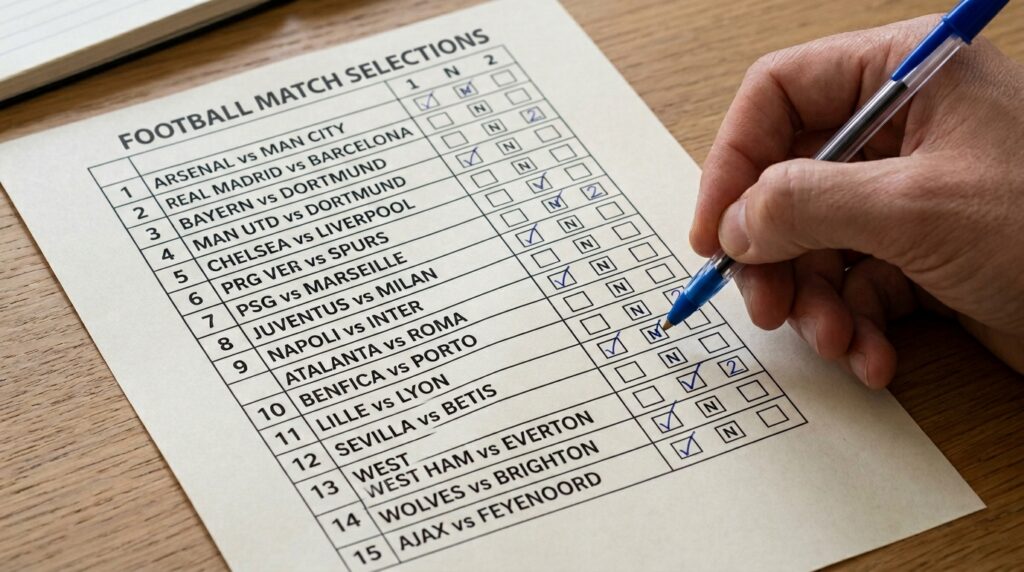 FOOTBALL MATCH SELECTIONS
1 N 2
1 ARSENAL vs MAN CITY N
2 REAL MADRID vs BARCELONA N 2
3 BAYERN vs DORTMUND N
4 MAN UTD vs DORTMUND N
5 CHELSEA vs LIVERPOOL 2
6 PRG VER vs SPURS N
7 PSG vs MARSEILLE N
8 JUVENTUS vs MILAN N
9 NAPOLI vs INTER N
ATALANTA vs ROMA N
10 BENFICA vs PORTO N
11 LILLE vs LYON 2
12 SEVILLA vs BETIS N
13 WEST
WEST HAM vs EVERTON N
14 WOLVES vs BRIGHTON
15 AJAX vs FEYENOORD